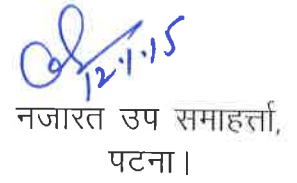 12.1.15
नजारत उप समाहर्त्ता,
पटना।